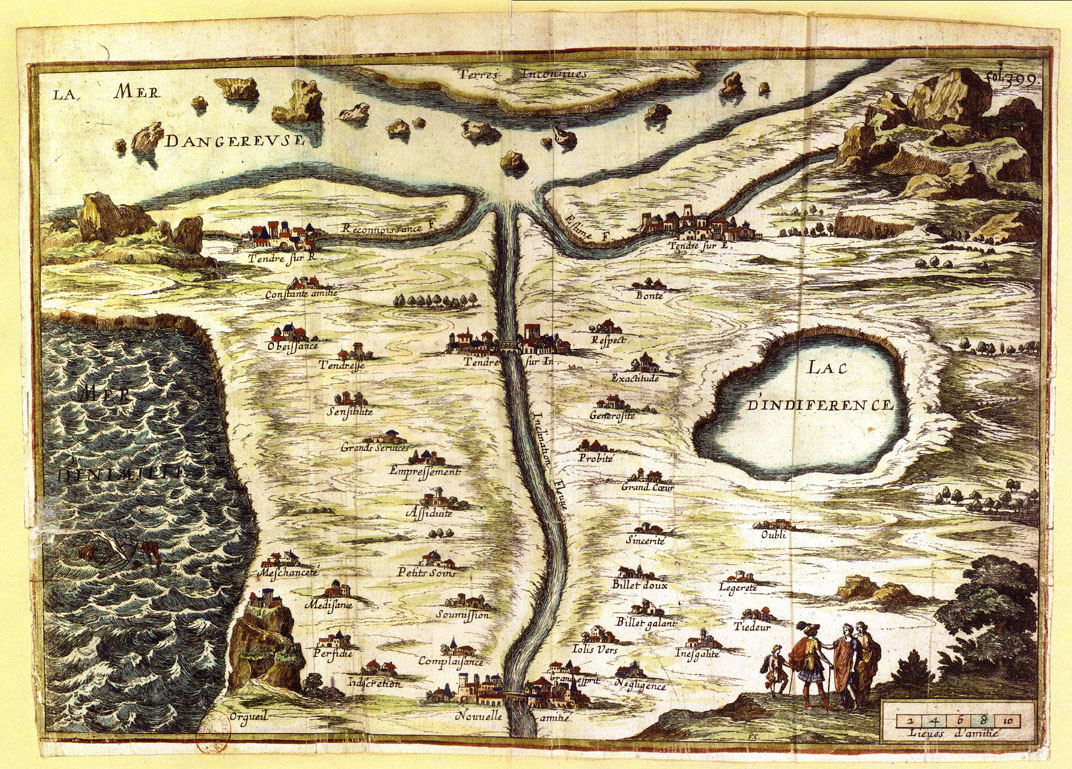 fol. 399.
Terres Inconnues
LA MER
DANGEREVSE
Reconnoissance F.
Estime F.
Tendre sur R.
Tendre sur E.
Constante amitié
Bonté
Obeissance
Respect
Tendresse
Tendre sur In.
Exactitude
LAC
D'INDIFERENCE
MER
D'INIMITIÉ
Sensibilité
Generosité
Inclination Fleuve
Grands Services
Probité
Empressement
Grand Cœur
Assiduité
Sincerité
Oubli
Meschanceté
Petits Soins
Billet doux
Legereté
Medisance
Soumission
Billet galant
Tiedeur
Perfidie
Complaisance
Iolis Vers
Inesgalité
Indscretion
Grand esprit
Negligence
Orgueil
Nouvelle amitié
2 4 6 8 10
Lieues d'amitié